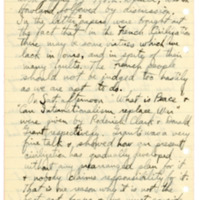 followed by discussion.
In the latter papers were brought out
the fact that in the French Civilization
there may be some virtues which we
lack in ours, and in spite of their
many faults. The French people
should not be judged too hastily
as we are apt to do.
On Sat. afternoon What is Peace &
Can Internationalism replace War
were given by Roderick Clark & Donald
Grant respectively. Grant's was a very
fine talk & showed how our present
civilization has gradually developed
without any prearranged plan for it
& nobody blame responsibility for it.
That is one reason why it is not the